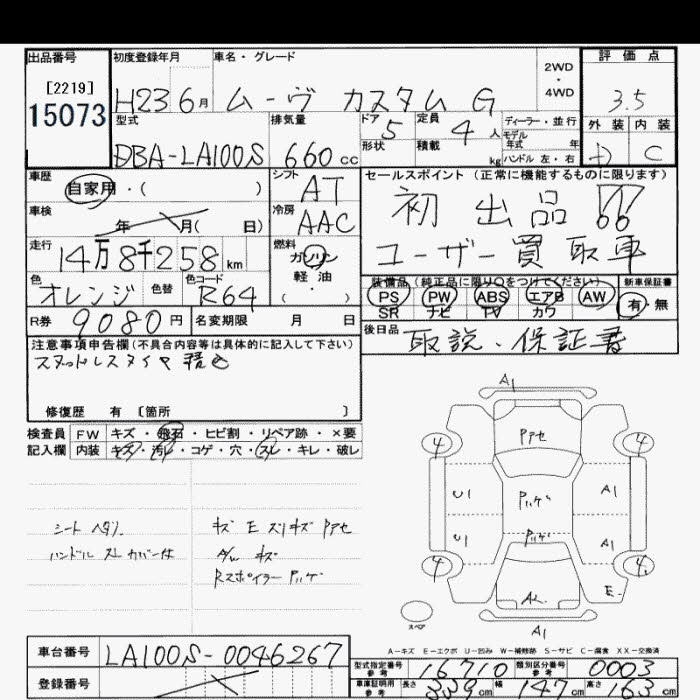 出品番号 初度登録年月 車名・グレード 2WD・4WD 評価点
[2219]
15073 H23 6月 ムーヴ カスタム G 3.5
型式 排気量 ドア 5 定員 4人 ディーラー・並行 外装 内装
DBA-LA100S 660cc 形状 積載 kg モデル年式 年 ハンドル 左・右 C
車歴 シフト セールスポイント (正常に機能するものに限ります)
自家用・( ) AT 初出品!!
車検 冷房
年 月( 日) AAC ユーザー買取車
走行 燃料
14万8千258km ガソリン
色 色替 色コード 軽油・( ) 装備品 (純品に限り○をつけてください) 新車保証書
オレンジ R64 PS PW ABS エアB AW 有・無
SR ナビ TV カワ
R券 9080円 名変期限 月 日 後日品 取説・保証書
注意事項申告欄(不具合内容等は具体的に記入して下さい)
スタッドレスタイヤ積込
修復歴 有 [箇所 ]
検査員 FW キズ・飛石・ヒビ割・リペア跡・×要
記入欄 内装 キズ・汚レ・コゲ・穴・スレ・キレ・破レ
シートヘタリ キズ E スリキズ Pアセ
ハンドル スレ カバー付 A/W キズ
Rスポイラー Pハゲ
A1
4 Pアセ 4
U1 Pハゲ A1
U1 Pハゲ A1
4 4
E
スペア A1
A-キズ E-エクボ U-凹み W-補修跡 S-サビ C-腐食 XX-交換済
車台番号 LA100S-0046267
型式指定番号 参考 16710 類別区分番号 参考 0003
登録番号
車庫証明用 参考 長さ 339cm 幅 147cm 高さ 163cm